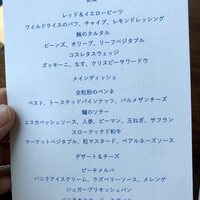 前菜
レッド＆イエロービーツ
ワイルドライスのパフ、チャイブ、レモンドレッシング
鮪のタルタル
ビーンズ、オリーブ、リーフベジタブル
コスレタスウェッジ
ズッキーニ、なす、クリスピーサワードウ
メインディッシュ
全粒粉のペンネ
ペスト、トーステッドパインナッツ、パルメザンチーズ
鱸のソテー
エスカベッシュソース、人参、ピーマン、玉ねぎ、サフラン
スロークックド和牛
マーケットベジタブル、粒マスタード、ベアルネーズソース
デザート＆チーズ
ピーチメルバ
バニラアイスクリーム、ラズベリーソース、メレンゲ
シュガーブリオッシュパン